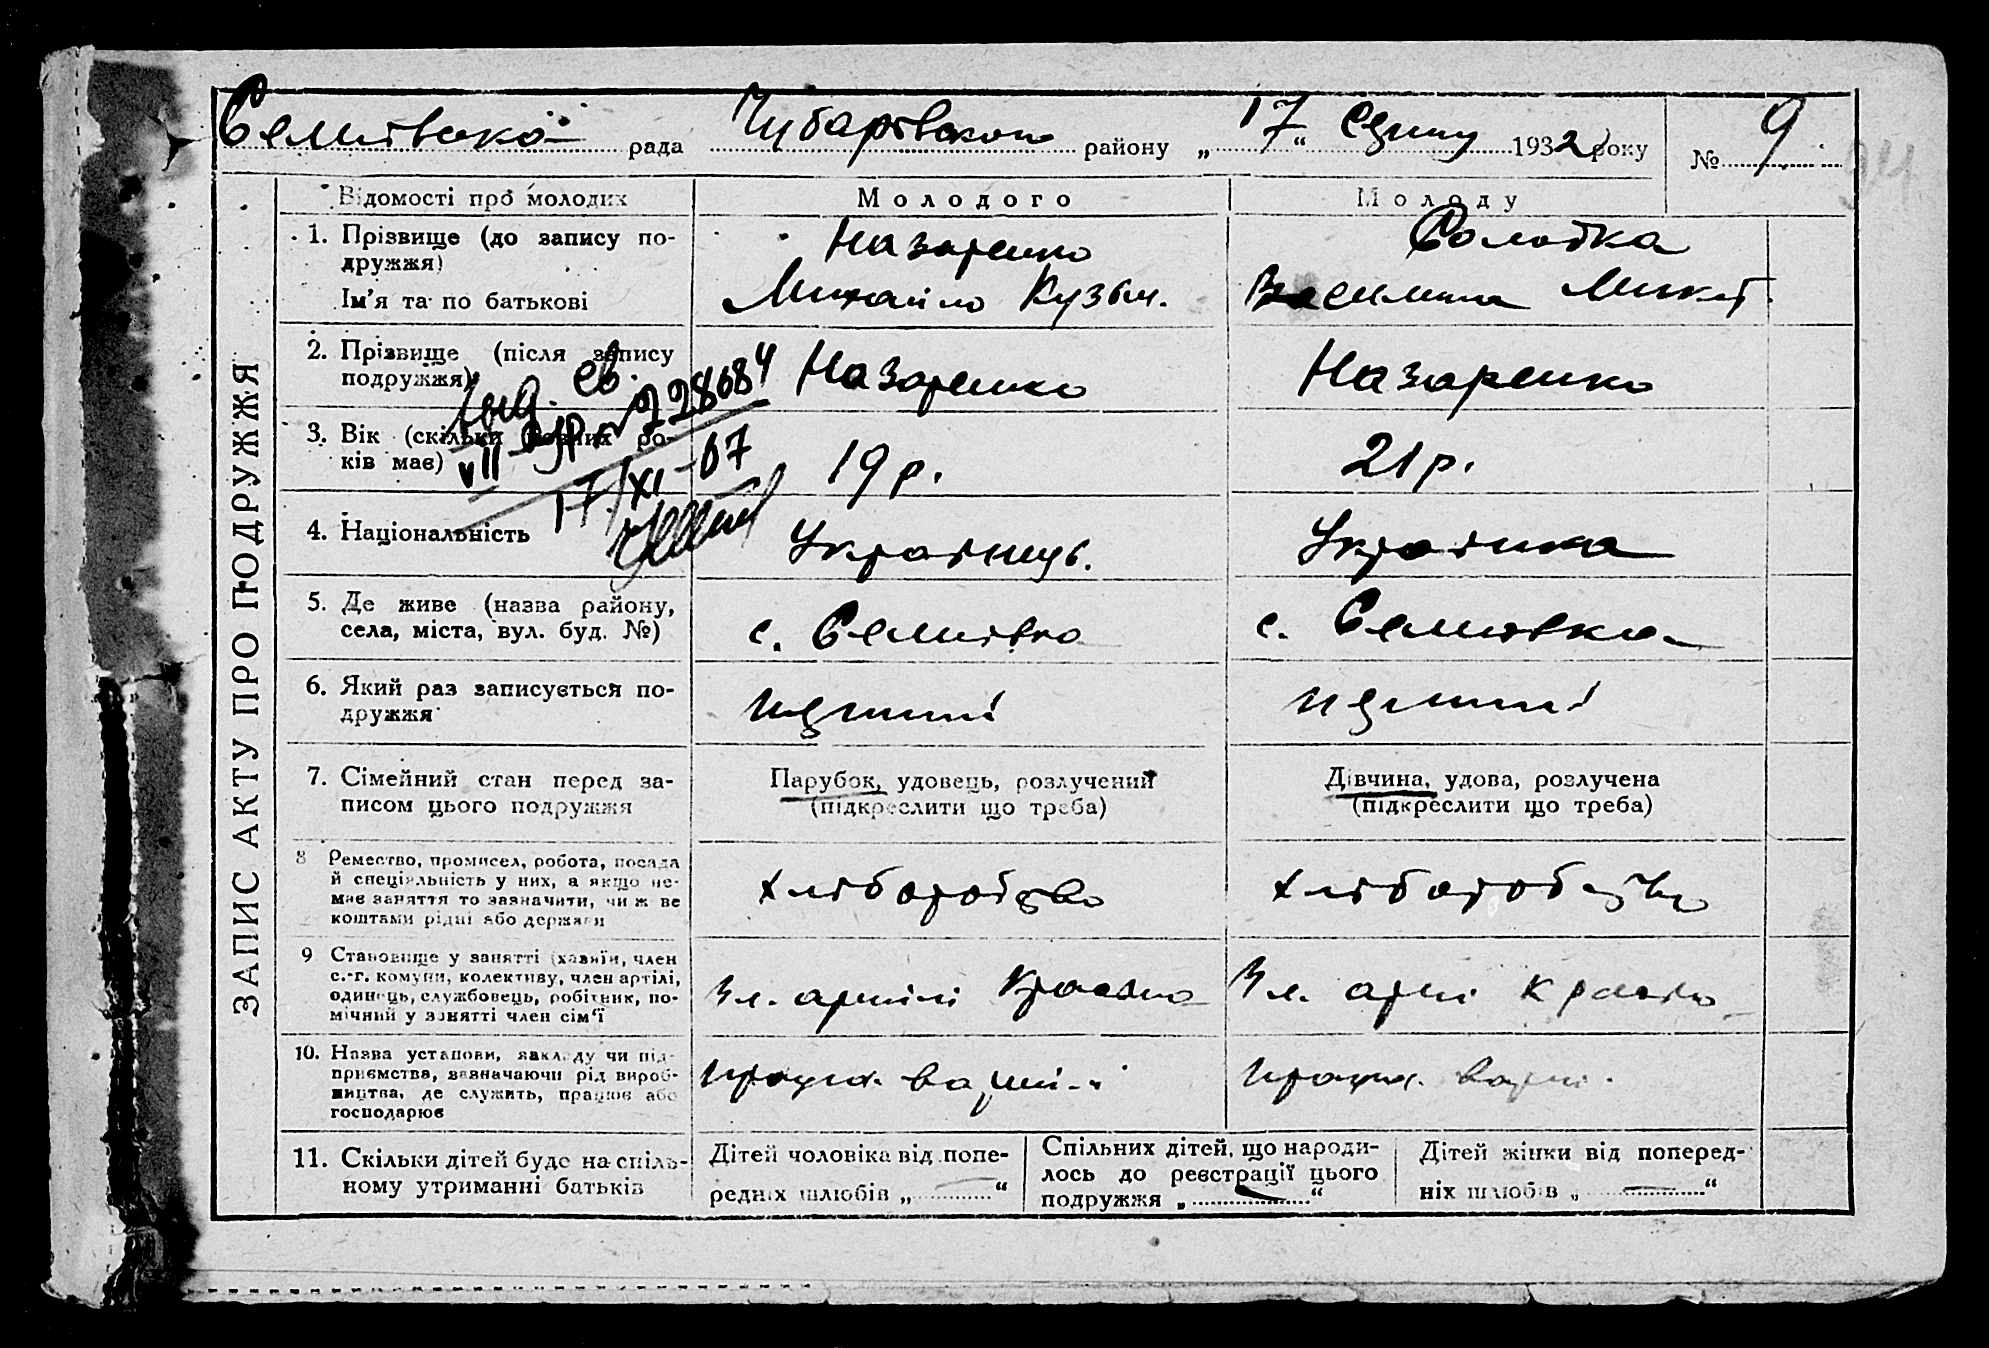 Семиівська рада Чубарівського району „17“ Січня 1932 року № 9
ЗАПИС АКТУ ПРО ПОДРУЖЖЯ
Відомості про молодих Молодого Молоду
1. Прізвище (до запису подружжя) Назаренко
Ім'я та по батькові Михайло Кузьм. Василина Микит.
2. Прізвище (після запису подружжя) Назаренко Назаренко
выд. св.
VII № 228684
17/XI-67
3. Вік (скільки повних років має) 19 р. 21 р.
4. Національність Українець. Українка
5. Де живе (назва району, села, міста, вул. буд. №) с. Семиівка с. Семиівка
6. Який раз записується подружжя перший перший
7. Сімейний стан перед записом цього подружжя
Парубок, удовець, розлучений
(підкреслити що треба)
Дівчина, удова, розлучена
(підкреслити що треба)
8 Ремество, промисел, робота, посада
й спеціяльність у них, а якщо не-
має заняття то зазначити, чи ж ве
коштами рідні або держави
хліборобство хліборобство
9 Становище у занятті (хазяїн, член
с.-г. комуни, колективу, член артілі,
одинець, службовець, робітник, по-
мічний у занятті член сім'ї
Чл. артілі Чл. арті
10. Назва установи, закладу чи під-
приємства, зазначаючи рід вироб-
ництва, де служить, працює або
господарює
11. Скільки дітей буде на спіль-
ному утриманні батьків
Дітей чоловіка від попе-
редніх шлюбів „ — “
Спільних дітей, що народи-
лось до реєстрації цього
подружжя „ — “
Дітей жінки від поперед-
ніх шлюбів „ — “